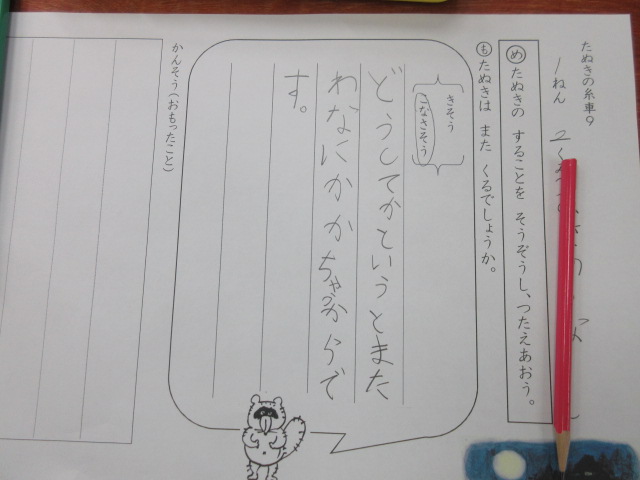 たぬきの糸車9
1ねん 2くみ
め たぬきの することを そうぞうし、つたえあおう。
も たぬきは また くるでしょうか。
きそう
こなさそう
どうしてかというとまた
わなにかかちゃうからで
す。
かんそう(おもったこと)